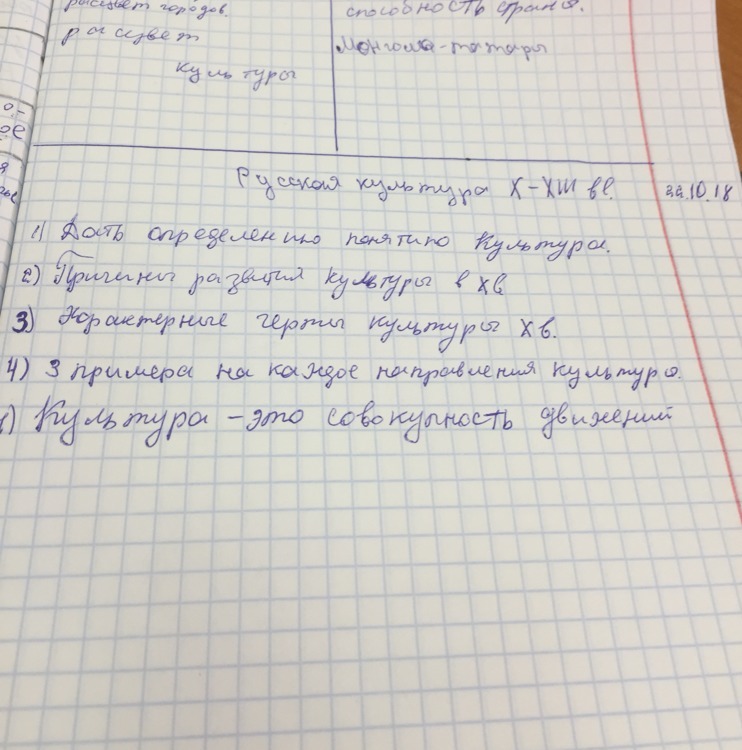 расцвет городов.
способность страна.
расцвет
Монгола-татары
культуры
Русская культура X-XIII вв. 22.10.18
1) Дать определению понятию Культура.
2) Причины развития культуры в Xв
3) Характерные черты культуры Xв.
4) 3 примера на каждое направления культура.
1) Культура - это совокупность движений